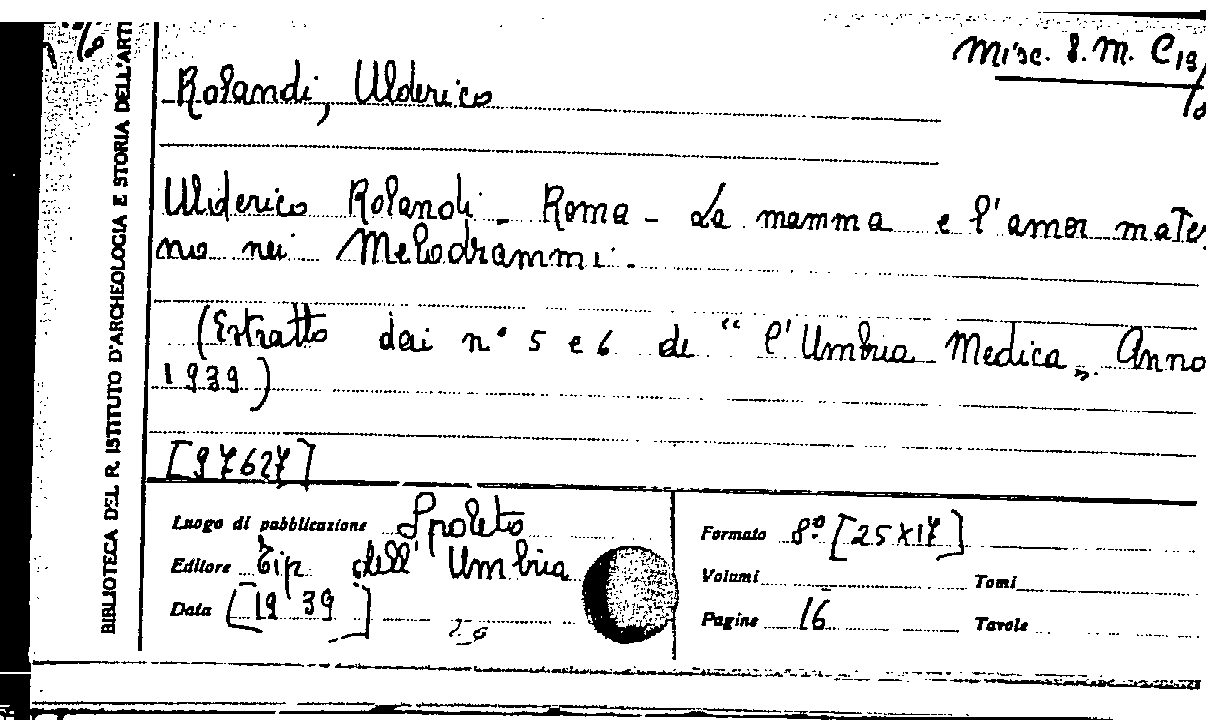 Misc. S. M. C 19/
BIBLIOTECA DEL R. ISTITUTO D'ARCHEOLOGIA E STORIA DELL'ARTE
Rolandi, Ulderico
Ulderico Rolandi - Roma - La mamma e l'amor mater
no nei Melodrammi.
(Estratto dai n° 5 e 6 de "l'Umbria Medica„ Anno
1939)
[97627]
Luogo di pubblicazione Spoleto
Editore Tip. dell'Umbria
Data [1939]
Formato 8° [25x17]
Volumi Tomi
Pagine 16 Tavole